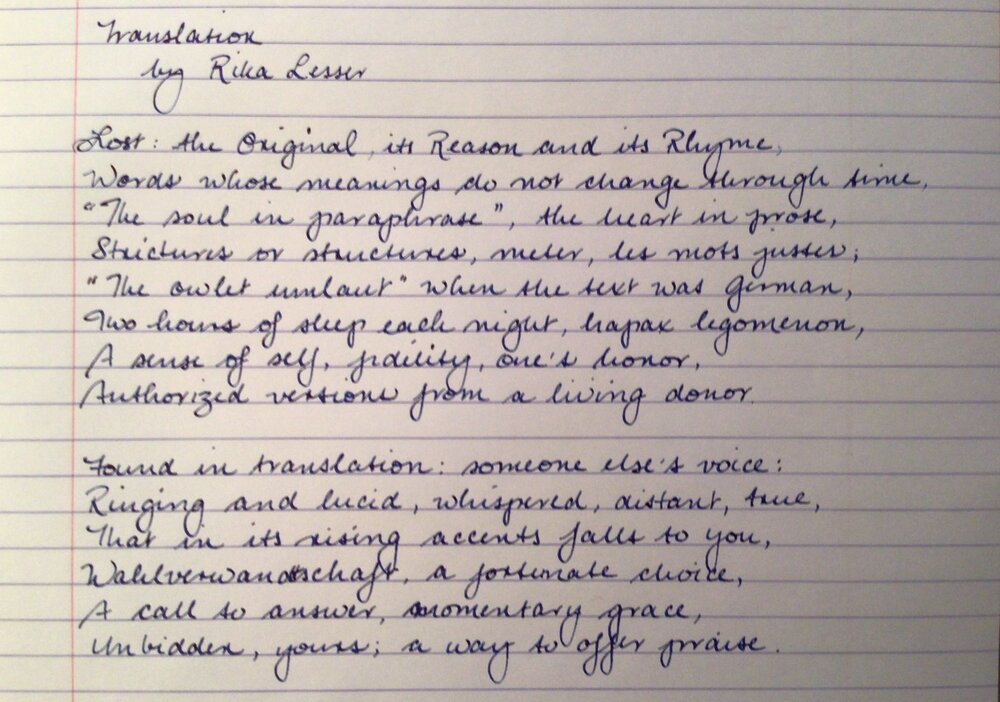 Translation
by Rika Lesser
Lost: the Original, its Reason and its Rhyme,
Words whose meanings do not change through time,
"The soul in paraphrase", the heart in prose,
Strictures or structures, meter, les mots justes;
"The owlet umlaut" when the text was German,
Two hours of sleep each night, hapax legomenon,
A sense of self, fidelity, one's honor,
Authorized versions from a living donor.
Found in translation: someone else's voice:
Ringing and lucid, whispered, distant, true,
That in its rising accents falls to you,
Wahlverwandtschaft, a fortunate choice,
A call to answer, momentary grace,
Unbidden, yours; a way to offer praise.